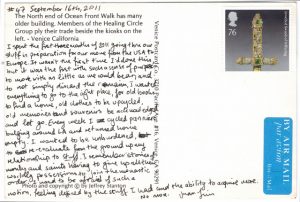 #47 September 16th, 2011
The North end of Ocean Front Walk has many
older building. Members of the Healing Circle
Group ply their trade beside the kiosks on the
left. - Venice California
I spent the first three months of 2011 going thru our
stuff in preparation for our move from the USA to
Europe. It wasn't the first time I'd done this
but it was the first with such a sense of purpose
to work with as little as we could bear, and
to not simply discard the remains, I wanted
everything to go to the right place, for old books
to find a home, old clothes to be upcycled,
old memories and souvenirs to be acknowledged
and let go. Every week I cycled pannier
bulging around LA and returned home
empty. I wanted to be unburdened,
to re-evaluate from the ground up my
relationship to stuff. I remember stories of
monks and saints having to relinquish all their
worldly possessions to join the monastic
order
motion, feeling defined by the stuff I used and the ability to acquire more.
No more.
Photo and copyright © by Jeffrey Stanton
76
BY AIR MAIL
par avion